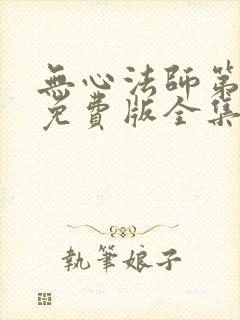 無心法師第
免費版全集
執筆娘子